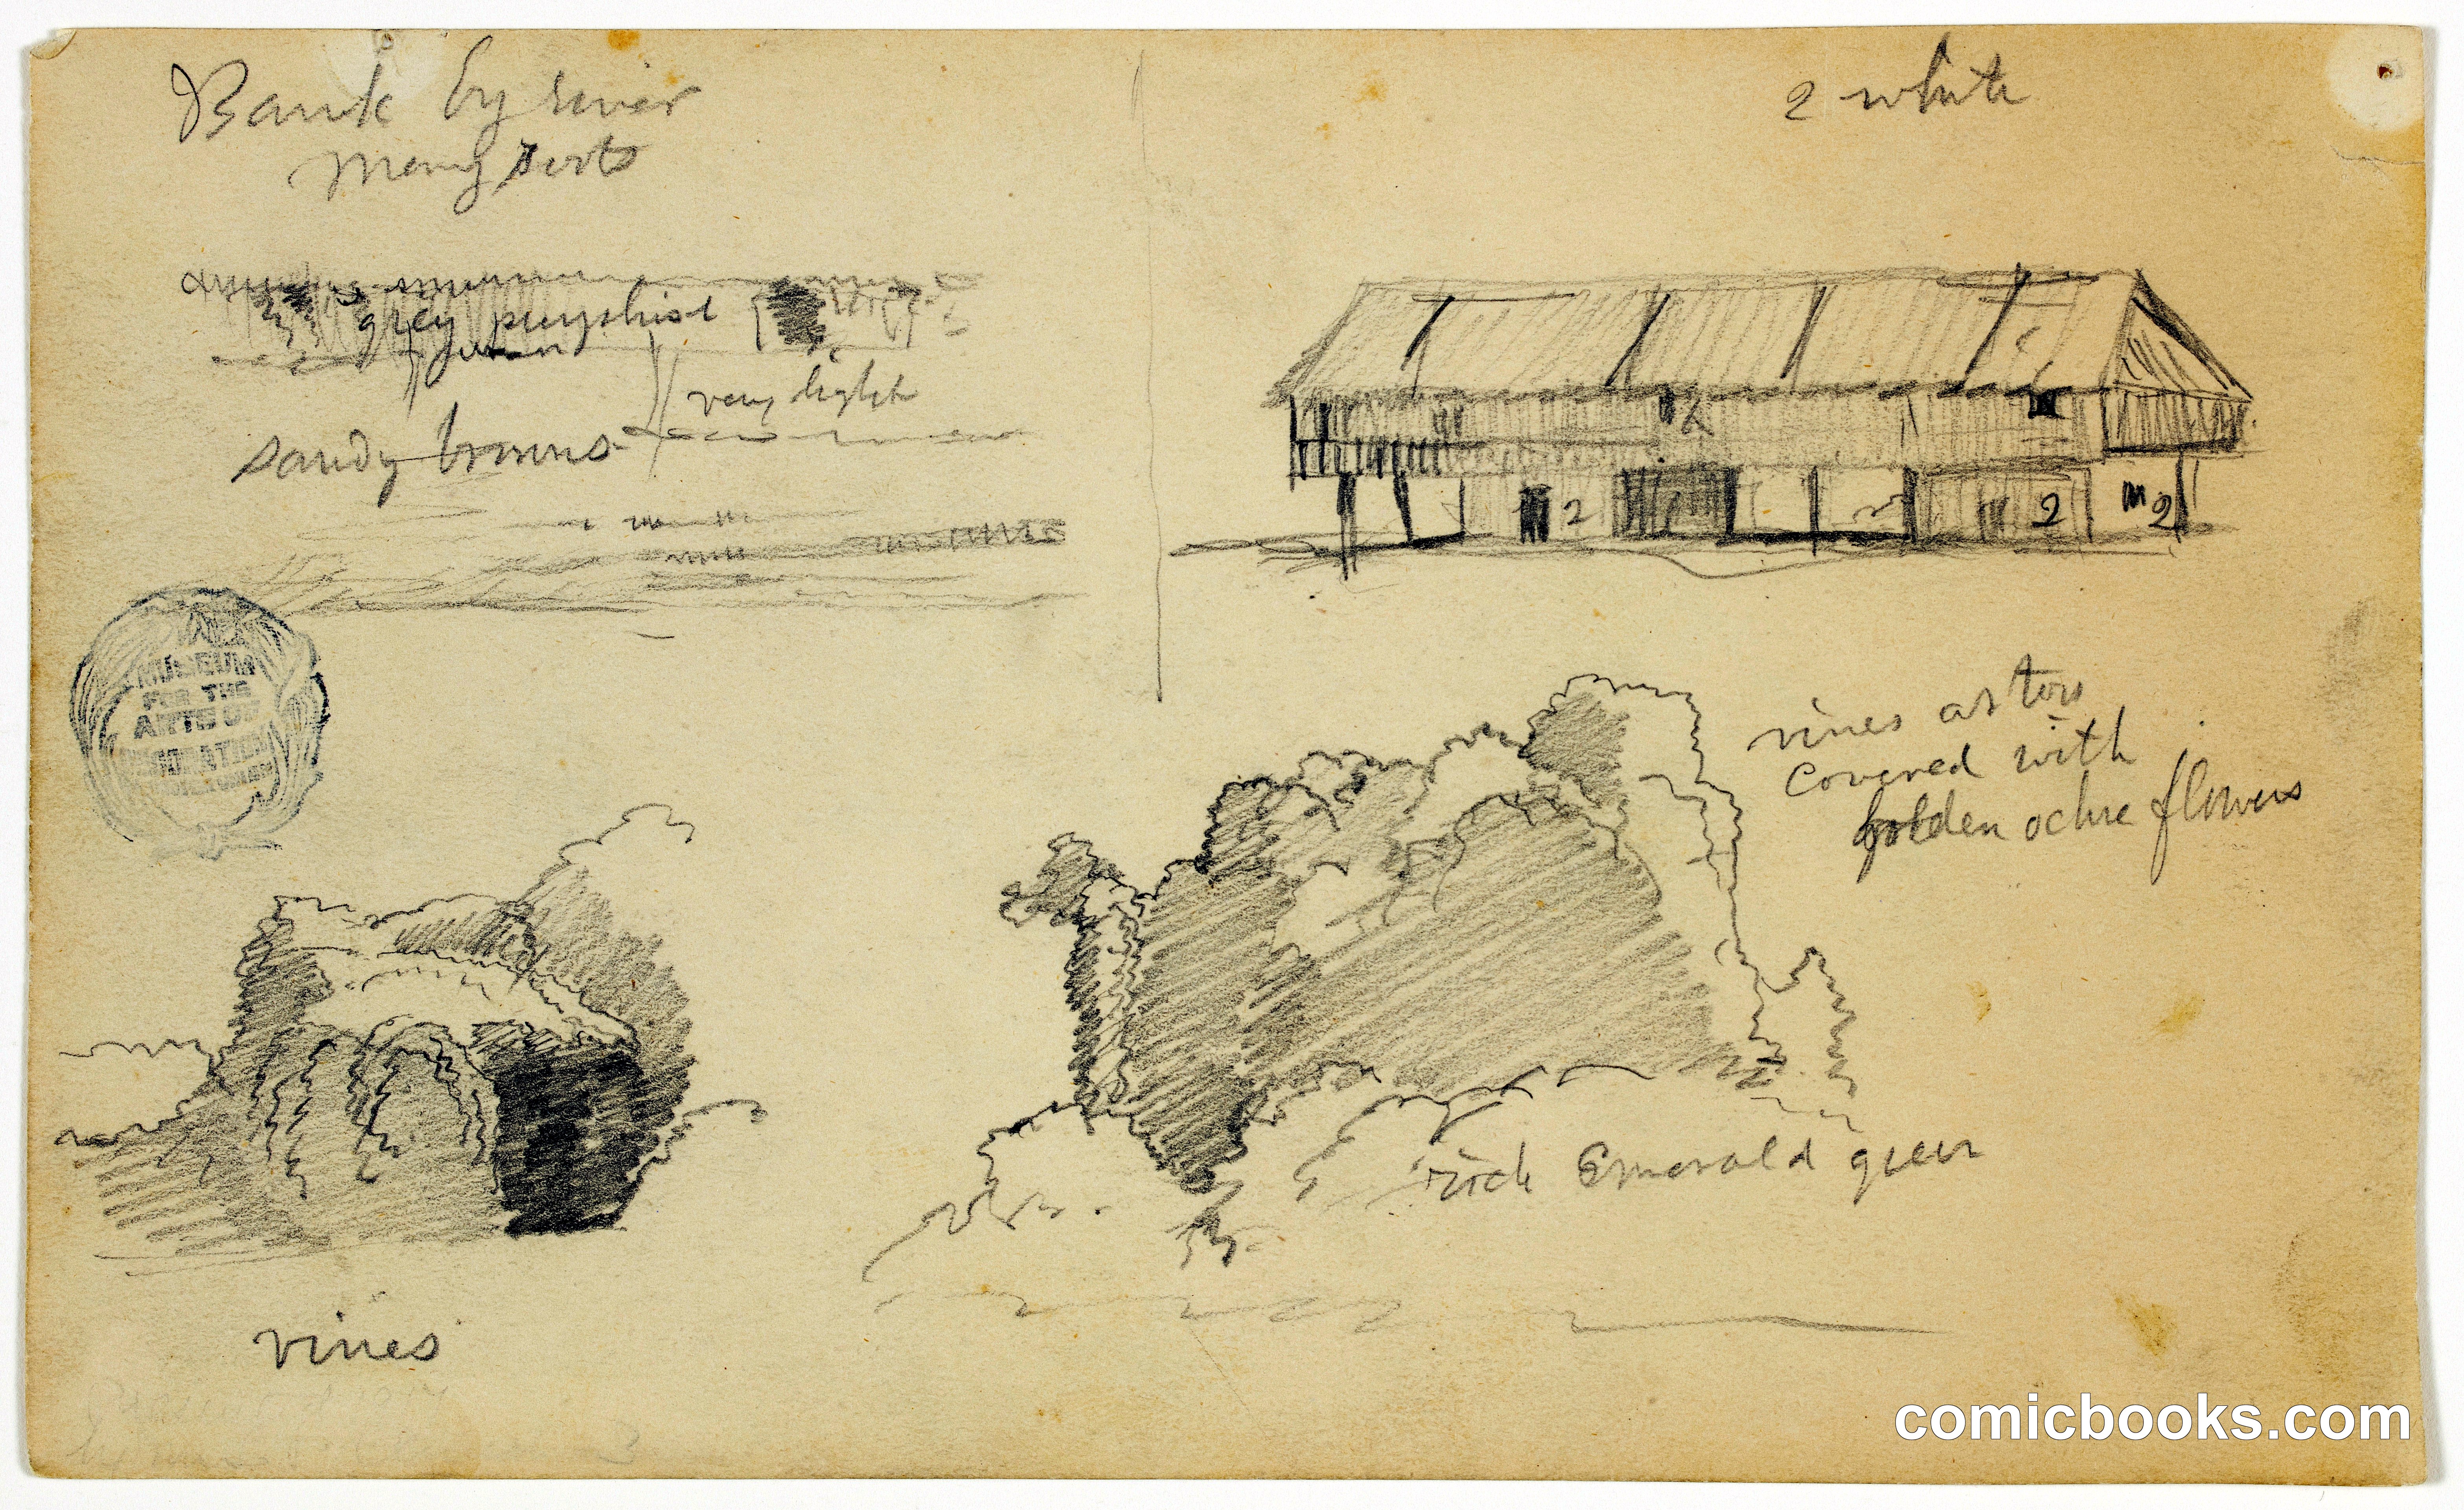 Bank by river
many
2 white
grey purplish
green
very light
sandy browns
2
2
2
2
MUSEUM
FOR THE
ARTS OF
DECORATION
vines as tow
covered with
golden ochre flowers
rich Emerald green
vines
comicbooks.com